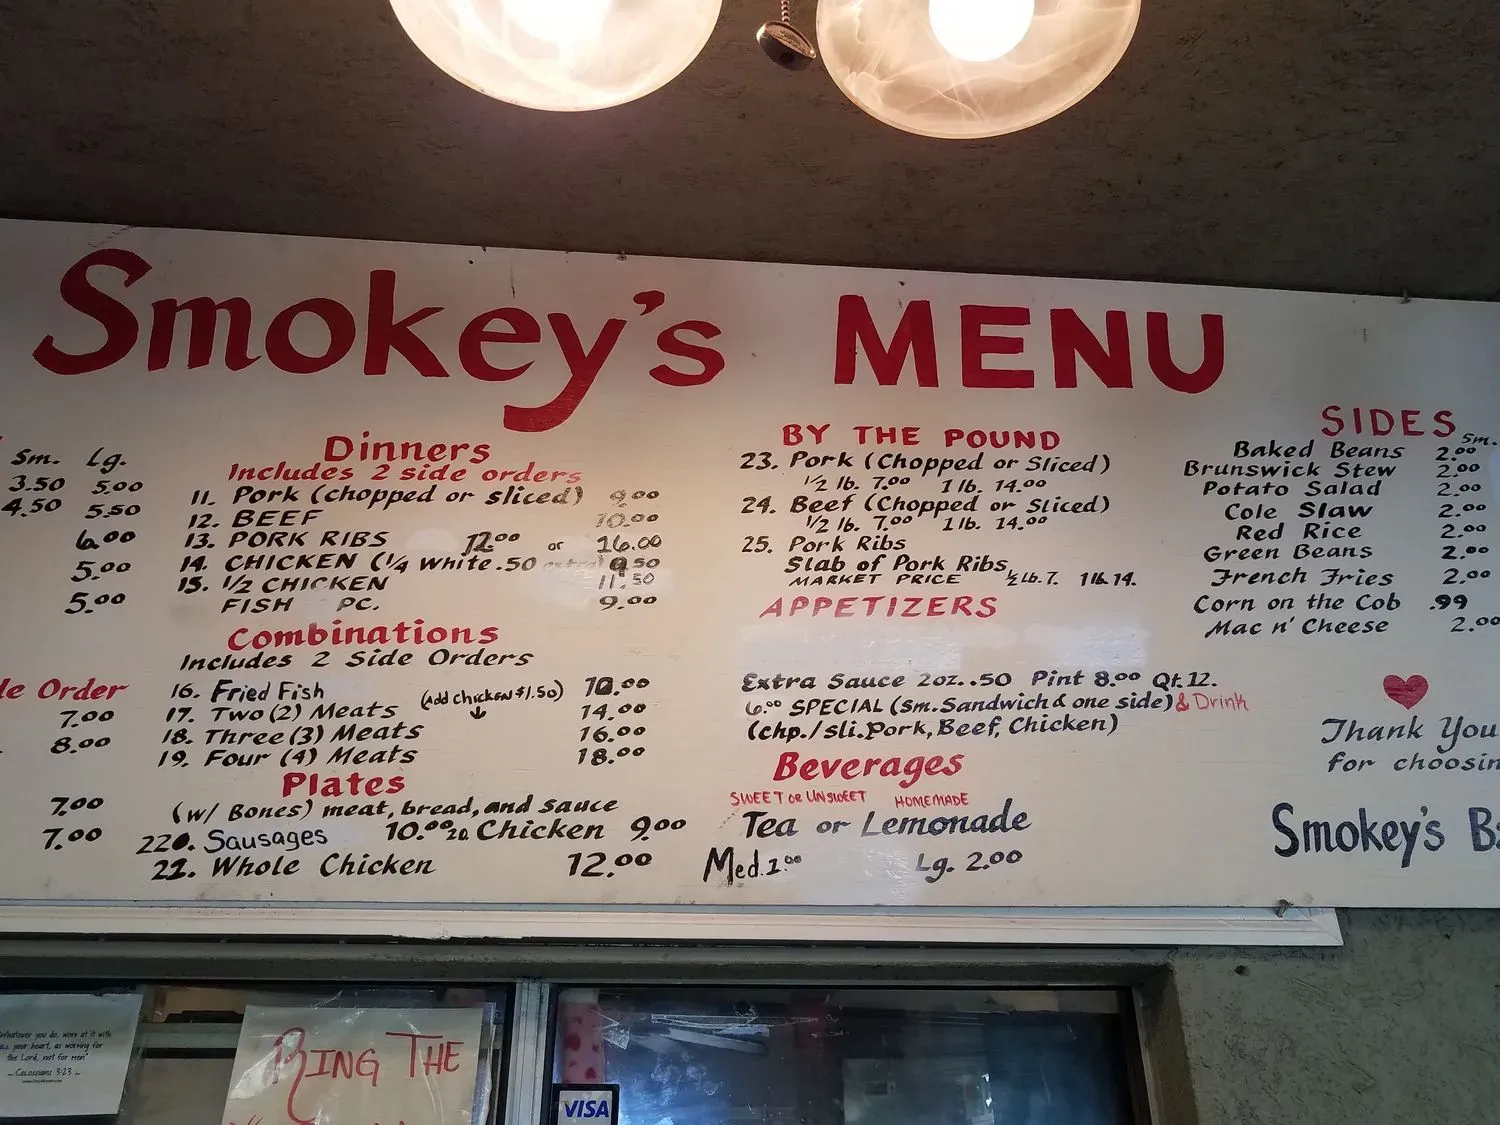 Smokey's MENU
Sm. Lg.
3.50 5.00
4.50 5.50
6.00
5.00
5.00
de Order
7.00
8.00
7.00
7.00
Dinners
Includes 2 side orders
11. Pork (chopped or sliced) 9.00
12. BEEF 10.00
13. PORK RIBS 12.00 or 16.00
14. CHICKEN (1/4 White .50 extra) 9.50
15. 1/2 CHICKEN 11.50
FISH PC. 9.00
Combinations
Includes 2 Side Orders
16. Fried Fish (Add chicken $1.50) 10.00
17. Two (2) Meats 14.00
18. Three (3) Meats 16.00
19. Four (4) Meats 18.00
Plates
(w/ Bones) meat, bread, and sauce
220. Sausages 10.00 20. Chicken 9.00
22. Whole Chicken 12.00
BY THE POUND
23. Pork (Chopped or Sliced)
1/2 lb. 7.00 1 lb. 14.00
24. Beef (Chopped or Sliced)
1/2 lb. 7.00 1 lb. 14.00
25. Pork Ribs
Slab of Pork Ribs
MARKET PRICE 1/2 lb. 7. 1 lb. 14.
APPETIZERS
Extra Sauce 2oz. .50 Pint 8.00 Qt. 12.
6.00 SPECIAL (Sm. Sandwich & one side) & Drink
(chp./sli. Pork, Beef, Chicken)
Beverages
SWEET or UNSWEET HOMEMADE
Tea or Lemonade
Med. 1.00 Lg. 2.00
SIDES
Sm.
Baked Beans 2.00
Brunswick Stew 2.00
Potato Salad 2.00
Cole Slaw 2.00
Red Rice 2.00
Green Beans 2.00
French Fries 2.00
Corn on the Cob .99
Mac n' Cheese 2.00
Thank You
for choosin
Smokey's B
"Whatever you do, work at it with
all your heart, as working for
the Lord, not for men"
~ Colossians 3:23 ~
RING THE
VISA